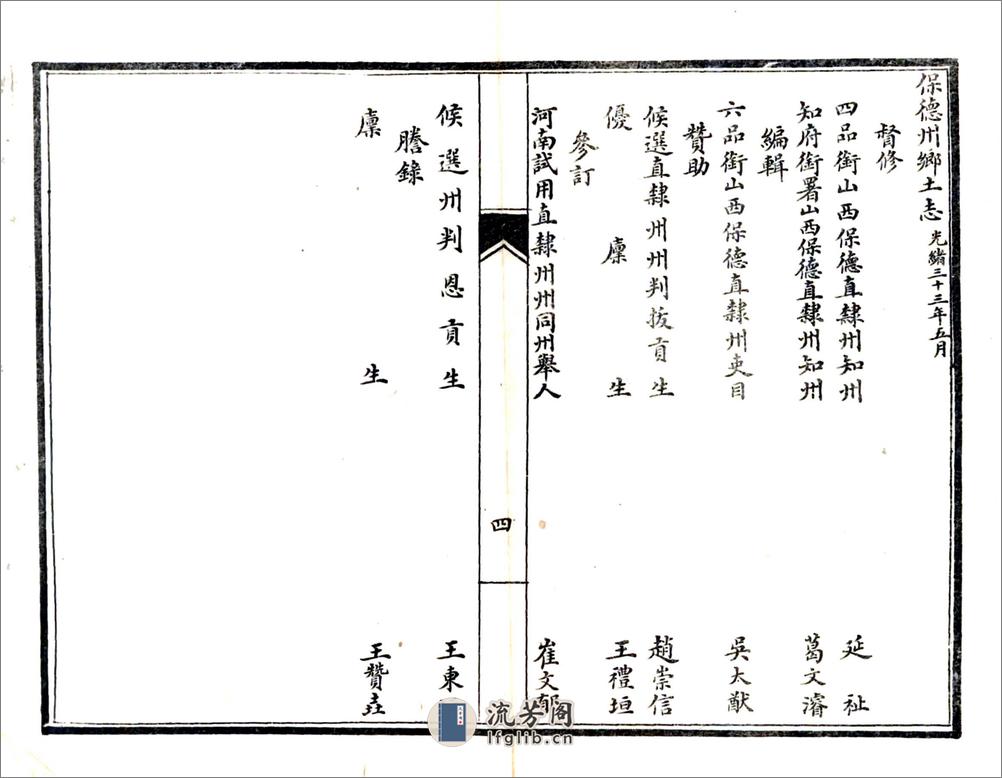 保德州鄉土志 光緒三十三年五月
督修
四品銜山西保德直隸州知州 延祉
知府銜署山西保德直隸州知州 葛文濬
編輯
六品銜山西保德直隸州吏目 吳太猷
贊助
候選直隸州州判拔貢生 趙崇信
優廩生 王禮垣
參訂
河南試用直隸州州同州舉人 崔文郁
四
候選州判恩貢生 王東
謄錄
廩生 王贊垚
流芳阁
lfglib.cn